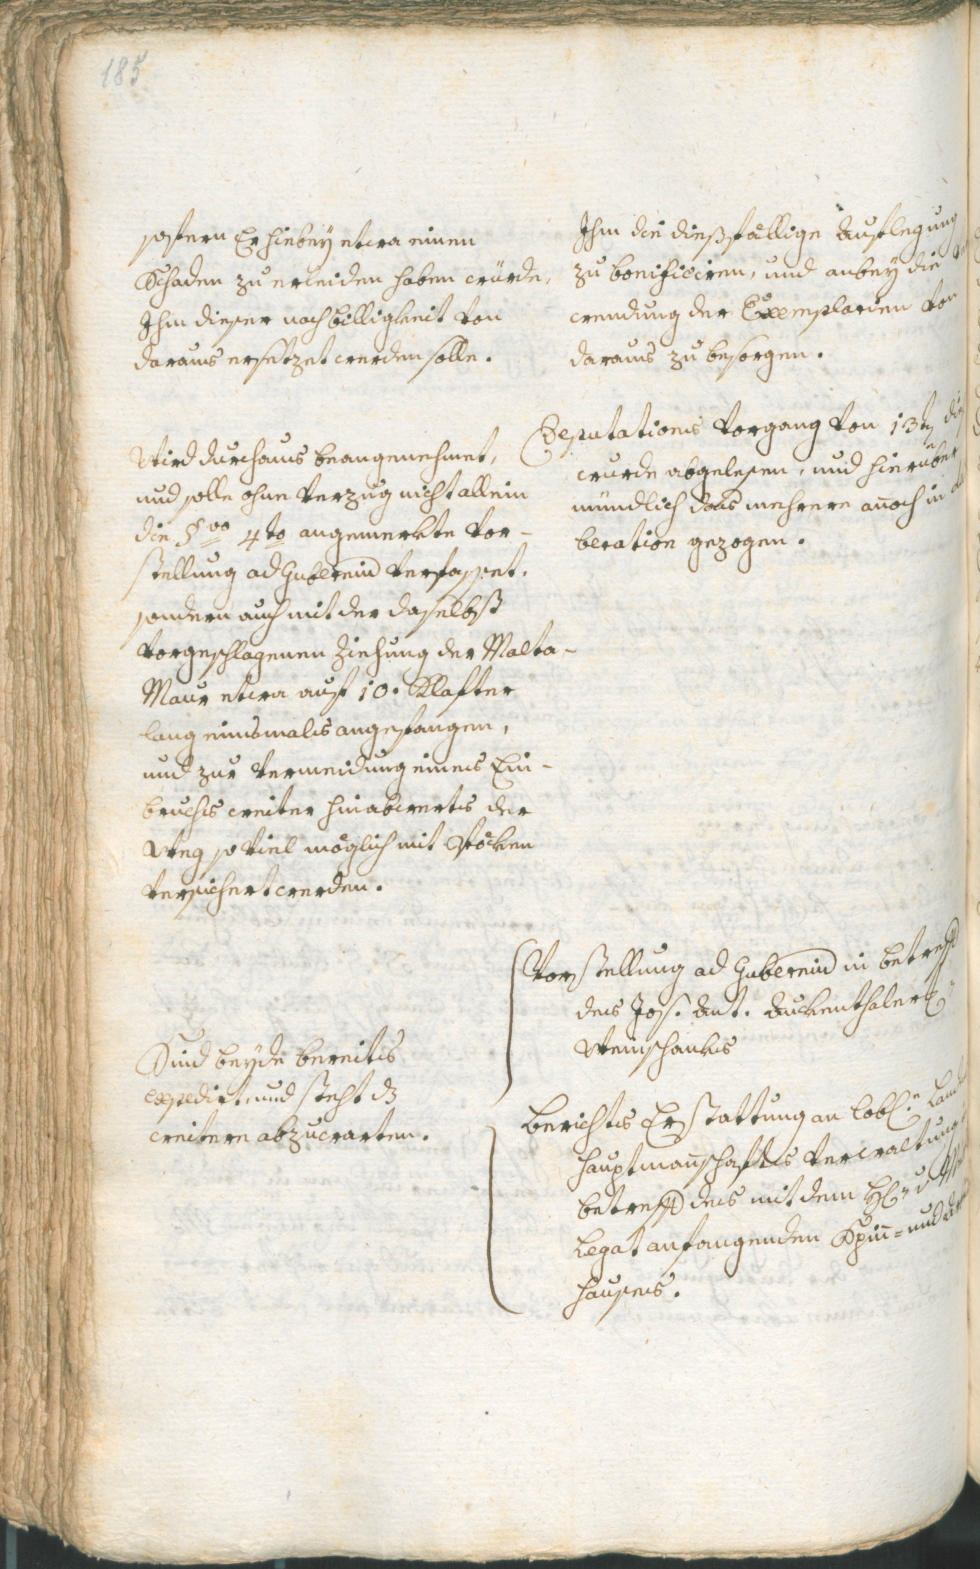 185
sofern Er hiebey etwa einen
Schaden zu erleiden haben würde,
Ihm dieser nach billigkeit von
daraus ersetzet werden solle.
Wird durchaus beangenehmet,
und solle ohne Verzug nicht allein
die §vo 4to angemerkte Vor-
stellung ad Gubernium verfasset,
sondern auch mit der daselbst
vorgeschlagenen Ziehung der Malta-
Maur etwa auf 10. Klafter
lang einsmals angefangen,
und zur Vermeidung eines Ein-
bruchs weiter hinabwerts der
Weg so viel möglich mit Stöcken
versichert werden.
Sind beyde bereits
expedirt, und steht es
weitere abzuwarten.
Ihm die dießfällige Auslegung
zu bonificiren, und anbey die
wendung der Exemplarien von
daraus zu besorgen.
Deputations Vorgang von 13ten
wurde abgelesen, und hierüber
mündlich das mehrere anoch in
beration gezogen.
Vorstellung ad Gubernium in betreff
des Jos. Ant. Auckenthaler
Weinschanks
Berichts Erstattung an Löbl.e
hauptmanschafts Verwaltung
betreff des mit dem
Legat anfangenden Spinn- und
hauses.